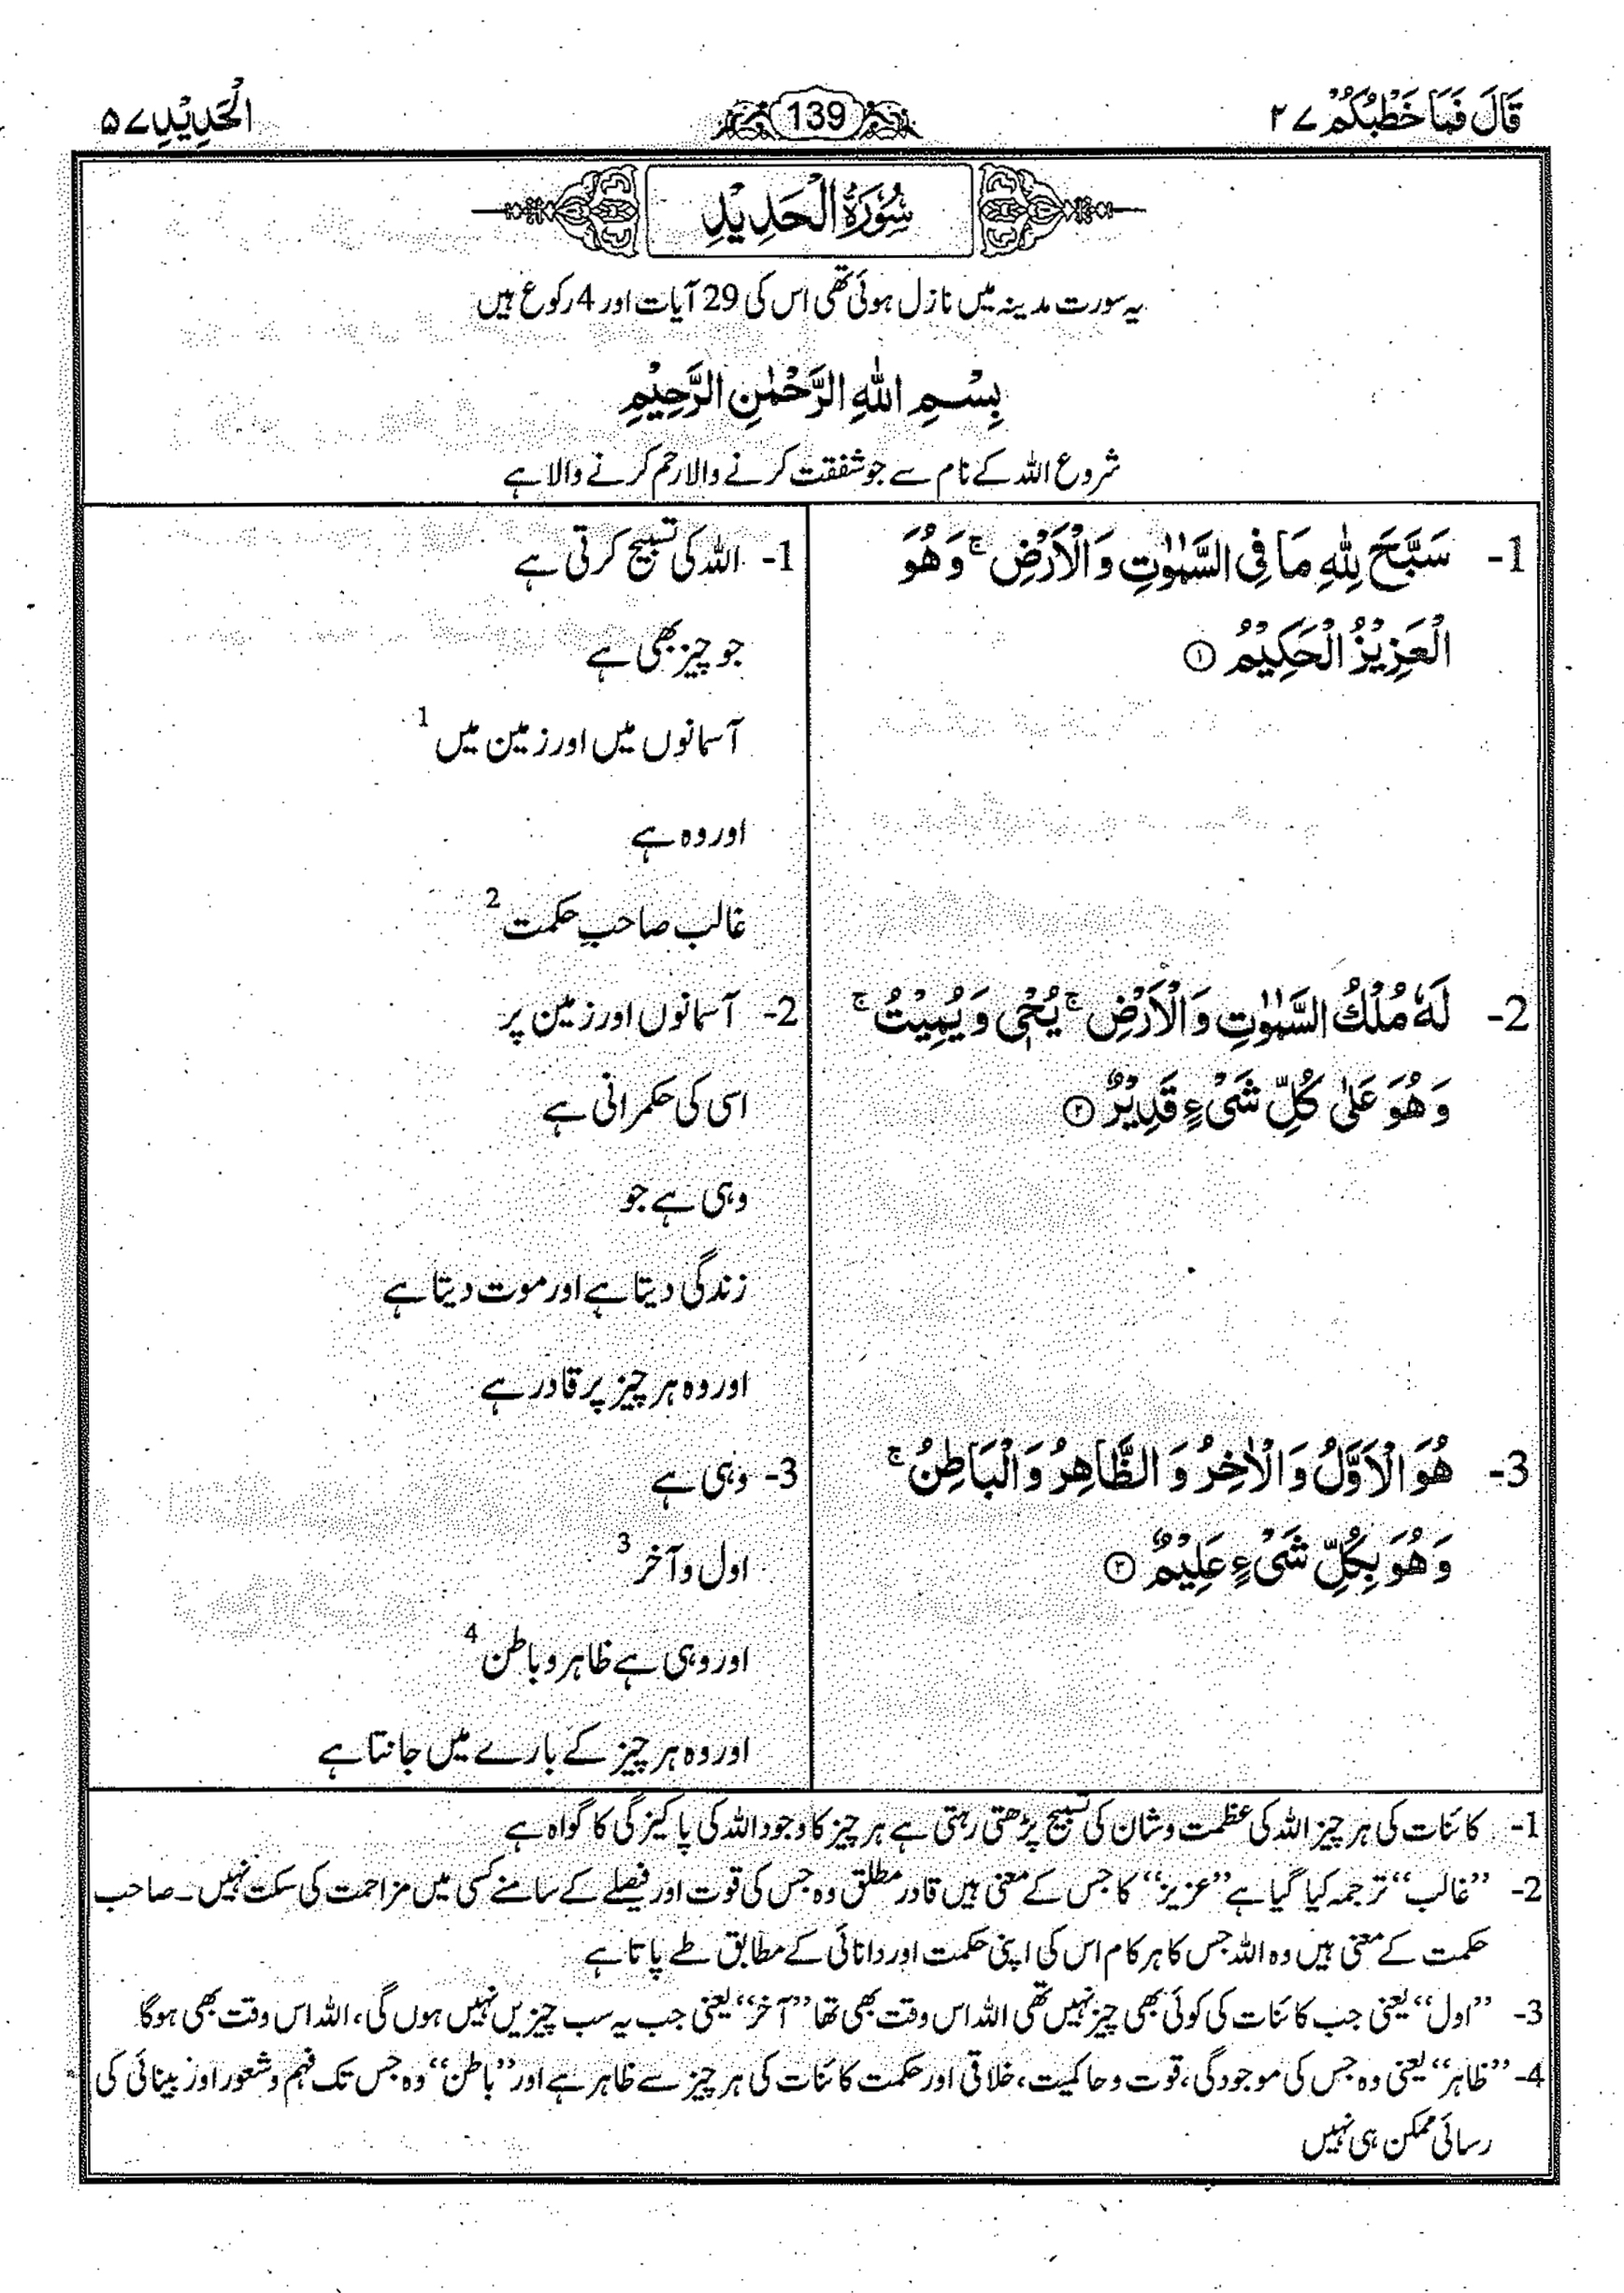 قَالَ فَمَا خَطْبُكُمْ ۲۷
139
الْحَدِيْدِ ۵۷
سُوْرَةُ الْحَدِيْدِ
یہ سورت مدینہ میں نازل ہوئی تھی اس کی 29 آیات اور 4 رکوع ہیں
بِسْمِ اللهِ الرَّحْمٰنِ الرَّحِيْمِ
شروع اللہ کے نام سے جو شفقت کرنے والا رحم کرنے والا ہے
1- سَبَّحَ لِلّٰهِ مَا فِي السَّمٰوٰتِ وَالْاَرْضِ ۚ وَهُوَ
الْعَزِيْزُ الْحَكِيْمُ ①
1- اللہ کی تسبیح کرتی ہے
جو چیز بھی ہے
آسمانوں میں اور زمین میں 1
اور وہ ہے
غالب صاحبِ حکمت 2
2- لَهٗ مُلْكُ السَّمٰوٰتِ وَالْاَرْضِ ۚ يُحْيٖ وَيُمِيْتُ ۚ
وَهُوَ عَلٰى كُلِّ شَيْءٍ قَدِيْرٌ ②
2- آسمانوں اور زمین پر
اسی کی حکمرانی ہے
وہی ہے جو
زندگی دیتا ہے اور موت دیتا ہے
اور وہ ہر چیز پر قادر ہے
3- هُوَ الْاَوَّلُ وَالْاٰخِرُ وَالظَّاهِرُ وَالْبَاطِنُ ۚ
وَهُوَ بِكُلِّ شَيْءٍ عَلِيْمٌ ③
3- وہی ہے
اول و آخر 3
اور وہی ہے ظاہر و باطن 4
اور وہ ہر چیز کے بارے میں جانتا ہے
1- کائنات کی ہر چیز اللہ کی عظمت و شان کی تسبیح پڑھتی رہتی ہے ہر چیز کا وجود اللہ کی پاکیزگی کا گواہ ہے
2- ”غالب“ ترجمہ کیا گیا ہے ”عزیز“ کا جس کے معنی ہیں قادر مطلق وہ جس کی قوت اور فیصلے کے سامنے کسی میں مزاحمت کی سکت نہیں۔ صاحب
حکمت کے معنی ہیں وہ اللہ جس کا ہر کام اس کی اپنی حکمت اور دانائی کے مطابق طے پاتا ہے
3- ”اول“ یعنی جب کائنات کی کوئی بھی چیز نہیں تھی اللہ اس وقت بھی تھا ”آخر“ یعنی جب یہ سب چیزیں نہیں ہوں گی، اللہ اس وقت بھی ہوگا
4- ”ظاہر“ یعنی وہ جس کی موجودگی، قوت و حاکمیت، خلاقی اور حکمت کائنات کی ہر چیز سے ظاہر ہے اور ”باطن“ وہ جس تک فہم و شعور اور بینائی کی
رسائی ممکن ہی نہیں